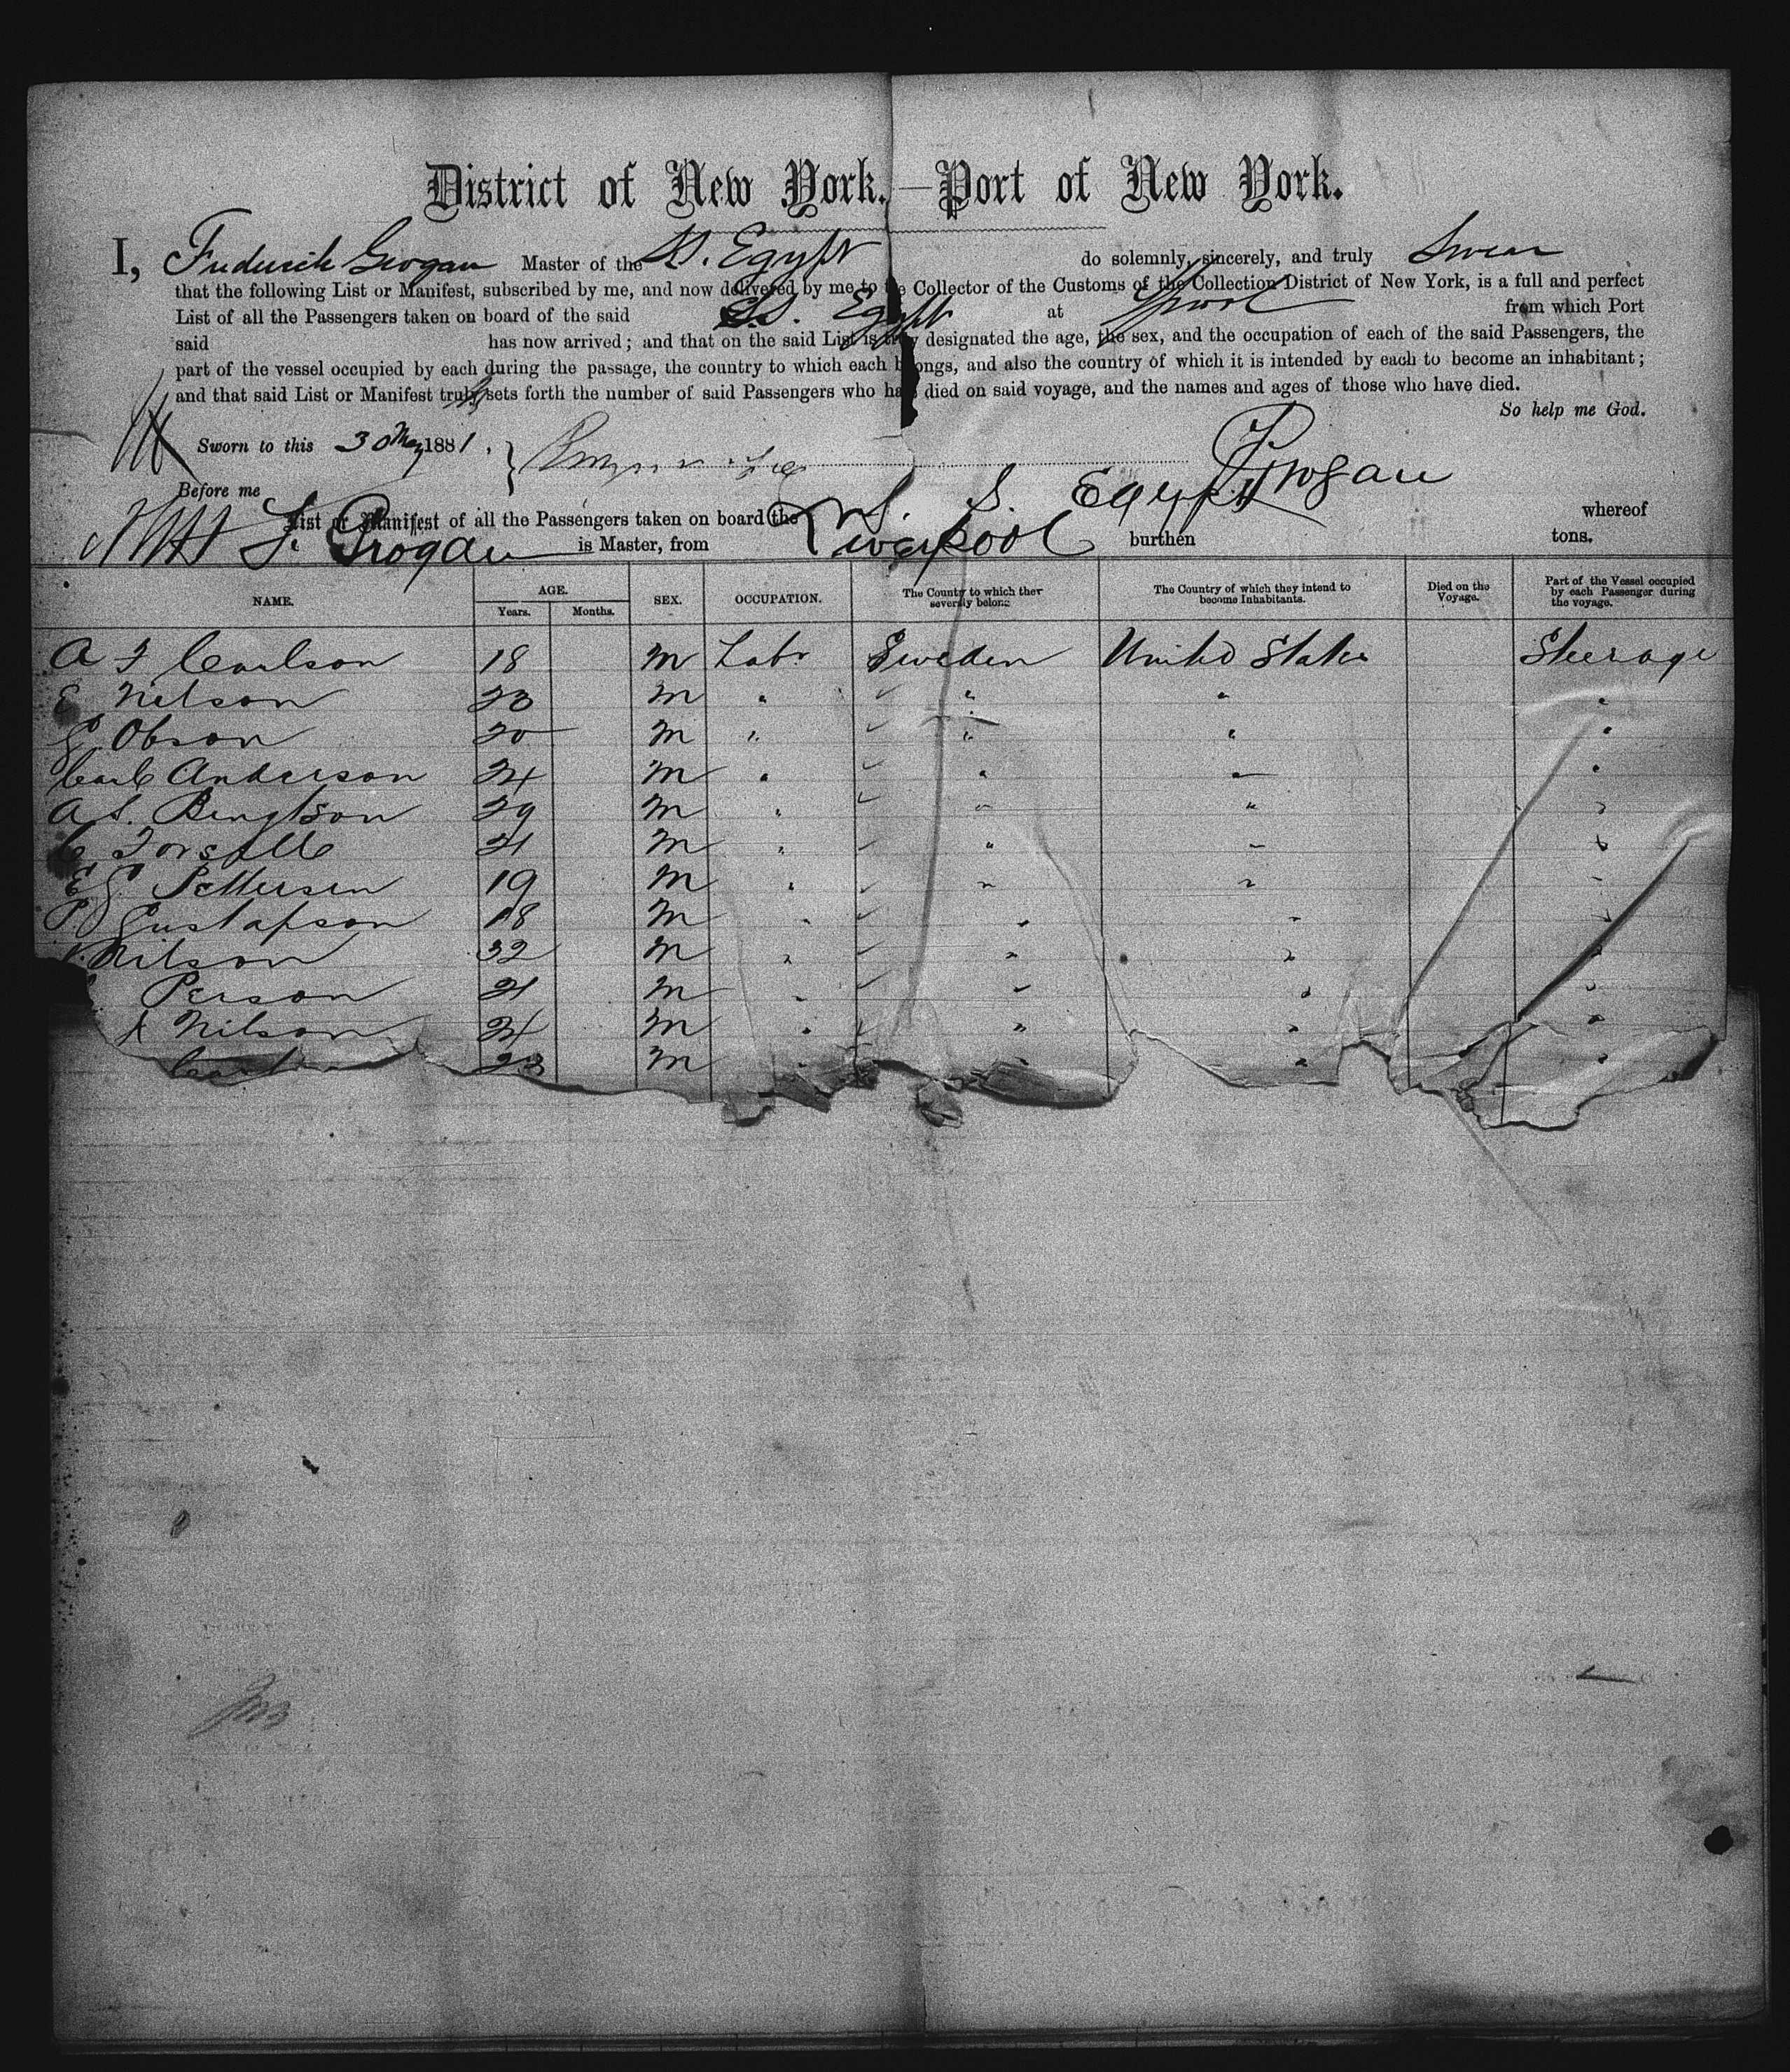 District of New York.—Port of New York.
I, Frederick Grogan Master of the SS. Egypt do solemnly, sincerely, and truly Swear
that the following List or Manifest, subscribed by me, and now delivered by me to the Collector of the Customs of the Collection District of New York, is a full and perfect
List of all the Passengers taken on board of the said SS. Egypt at Lpool from which Port
said has now arrived; and that on the said List is truly designated the age, the sex, and the occupation of each of the said Passengers, the
part of the vessel occupied by each during the passage, the country to which each belongs, and also the country of which it is intended by each to become an inhabitant;
and that said List or Manifest truly sets forth the number of said Passengers who have died on said voyage, and the names and ages of those who have died.
So help me God.
Sworn to this 30 May 1881.
F Grogan
Before me
List or Manifest of all the Passengers taken on board the S. S. Egypt whereof
F. Grogan is Master, from Liverpool burthen tons.
NAME. AGE. Years. Months. SEX. OCCUPATION. The County to which they severally belong. The Country of which they intend to become Inhabitants. Died on the Voyage. Part of the Vessel occupied by each Passenger during the voyage.
A F Carlson 18 M Labr Sweden United States Steerage
E Nelson 23 M " " " "
G Olson 20 M " " " "
Carl Anderson 24 M " " " "
A S. Bengtson 29 M " " " "
C Forsell 21 M " " " "
E G Pettersen 19 M " " " "
P Gustafson 18 M " " " "
Nilson 32 M " " " "
Person 21 M " " " "
Nilson 24 M " " " "
23 M " " " "